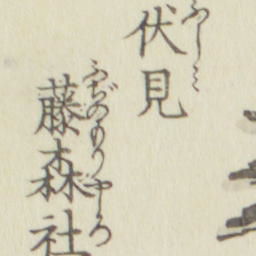 伏見
ふしミ
藤森社
ふぢのもりやしろ